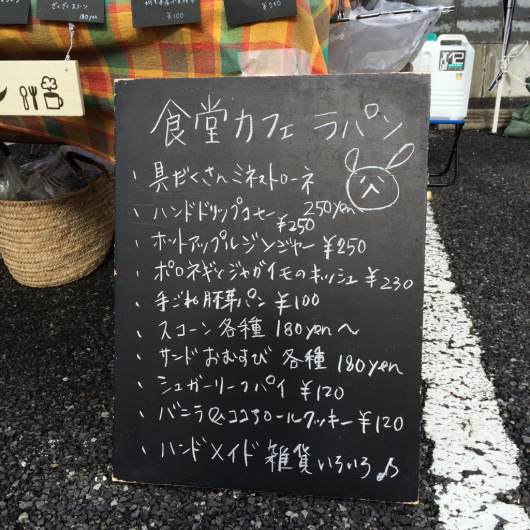 ざくざくスコーン
180yen
¥100
食堂カフェ ラパン
、具だくさんミネストローネ
250yen
、ハンドドリップコーヒー ¥250
、ホットアップルジンジャー ¥250
、ポロネギとジャガイモのキッシュ ¥230
、手ごね胚芽パン ¥100
、スコーン 各種 180yen〜
、サンドおむすび 各種 180yen
、シュガーリーフパイ ¥120
、バニラ&ココアロールクッキー ¥120
、ハンドメイド 雑貨 いろいろ♪